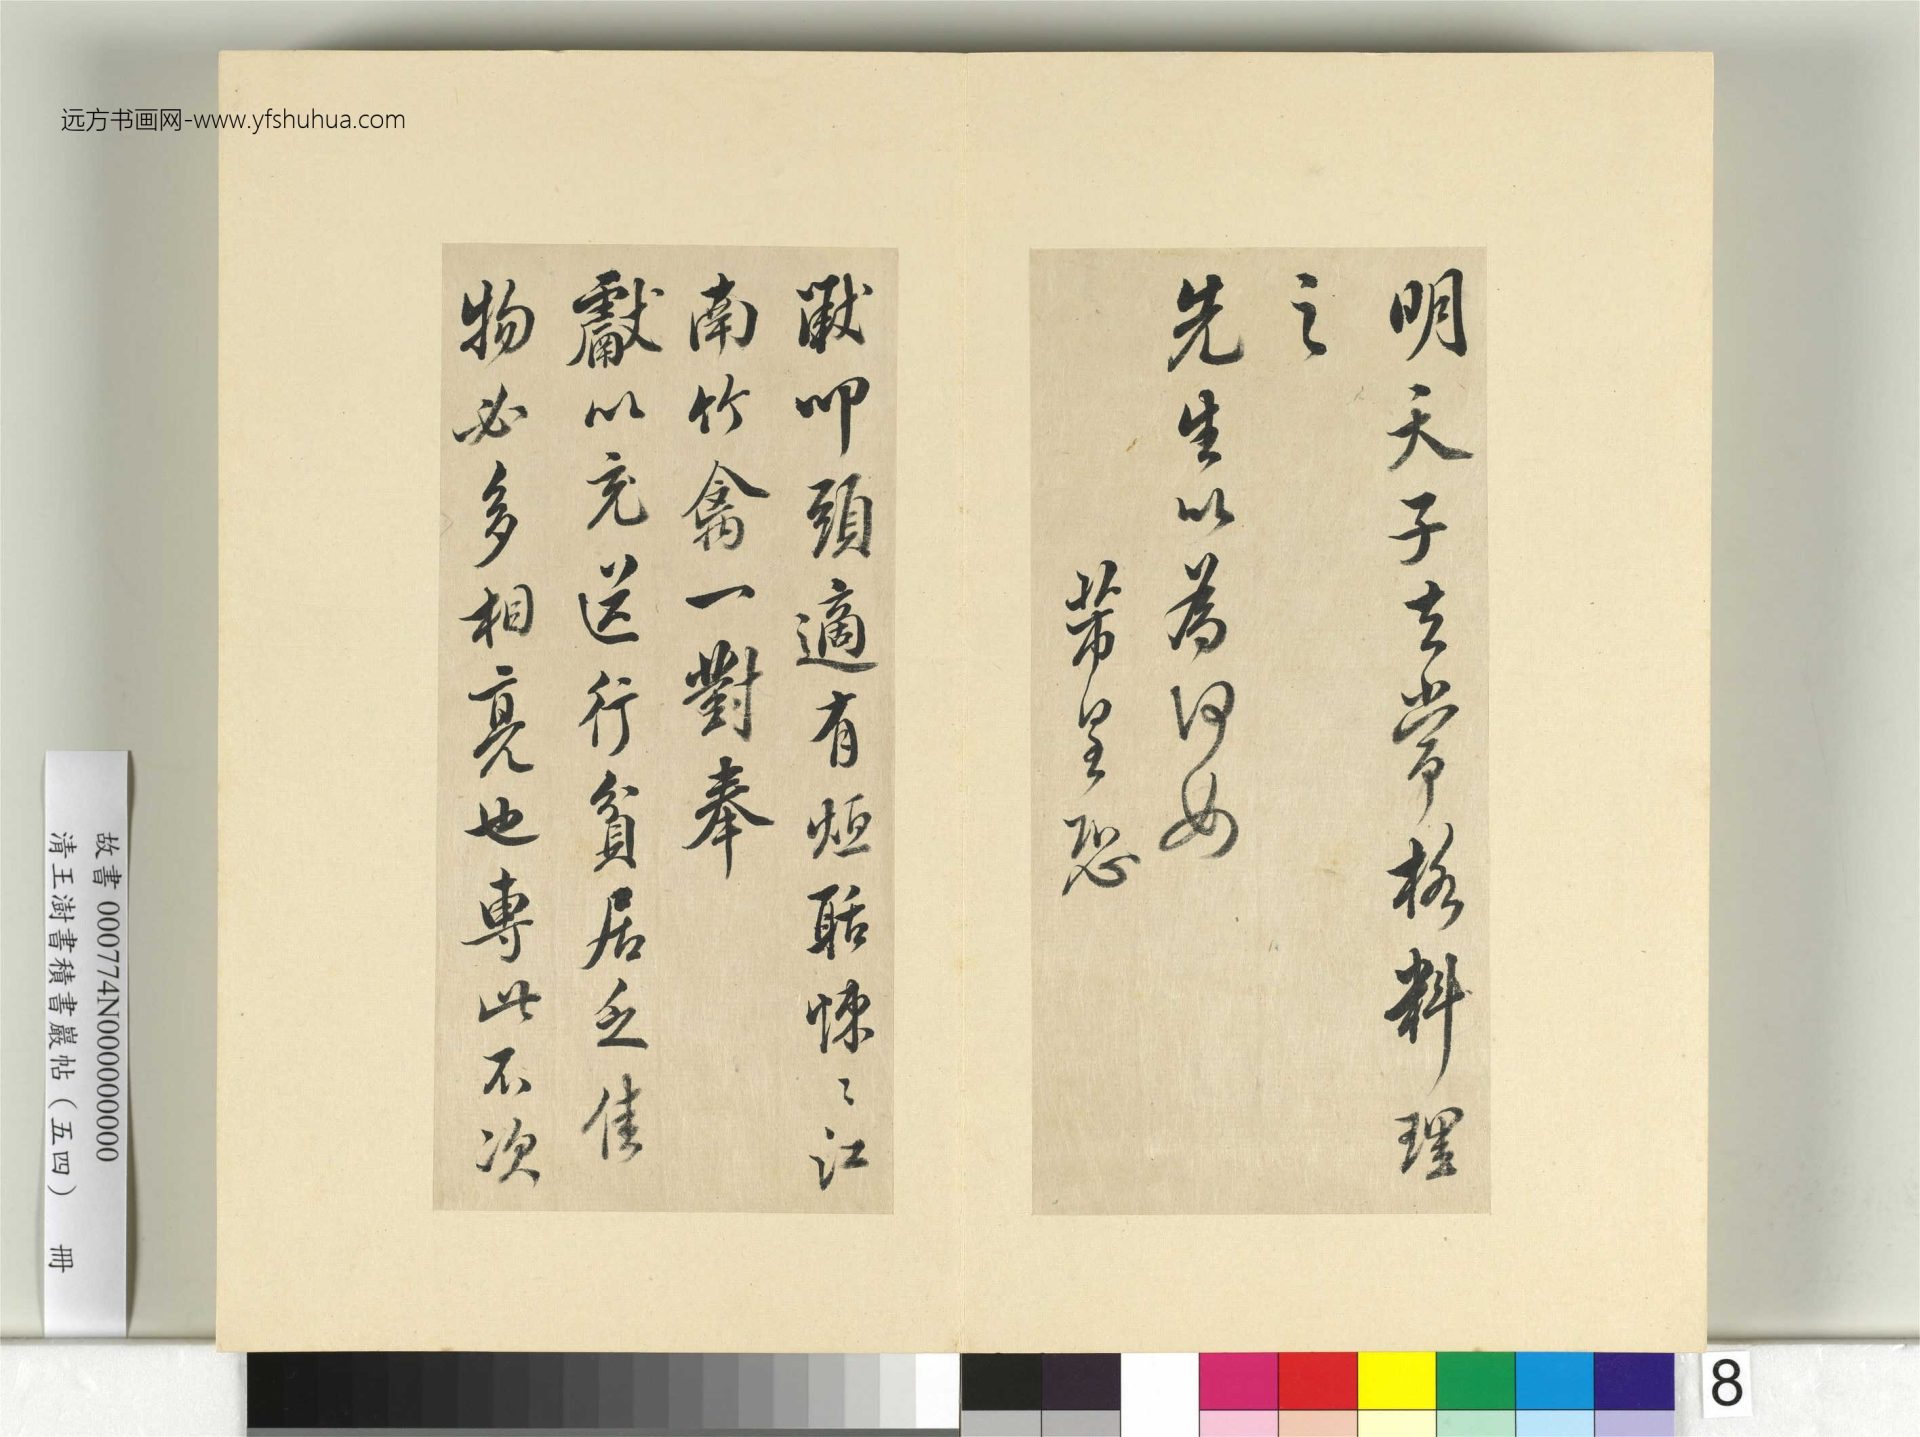 明天子去常格料理
之
先生以為何如
芾皇恐
戢叩頭適有烜聒悚〻江
南竹禽一對奉
獻以充送行貧居乏佳
物必多相亮也專此不次
远方书画网-www.yfshuhua.com
故書 000774N000000000
清王澍書積書巖帖(五四) 冊
8